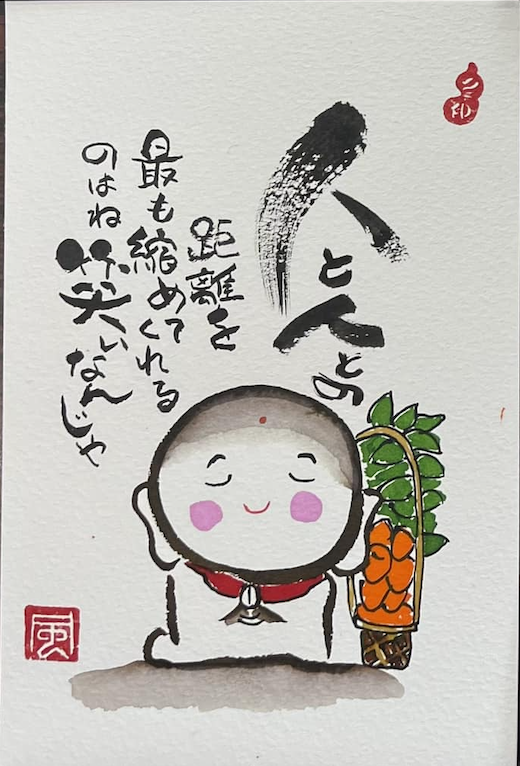 人と人との
距離を
最も縮めてくれる
のはね笑いなんじゃ